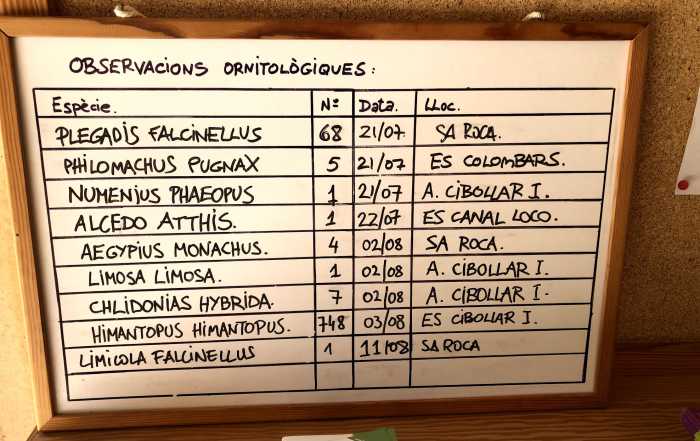 OBSERVACIONS ORNITOLÒGIQUES:
Espècie. Nº Data. LLOC.
PLEGADIS FALCINELLUS 68 21/07 SA ROCA.
PHILOMACHUS PUGNAX 5 21/07 ES COLOMBARS.
NUMENIUS PHAEOPUS 1 21/07 A. CIBOLLAR I.
ALCEDO ATTHIS. 1 22/07 ES CANAL LOCO.
AEGYPIUS MONACHUS. 4 02/08 SA ROCA.
LIMOSA LIMOSA. 1 02/08 A. CIBOLLAR I.
CHLIDONIAS HYBRIDA. 7 02/08 A. CIBOLLAR I.
HIMANTOPUS HIMANTOPUS. 748 03/08 ES CIBOLLAR I.
LIMICOLA FALCINELLUS 1 11/08 SA ROCA